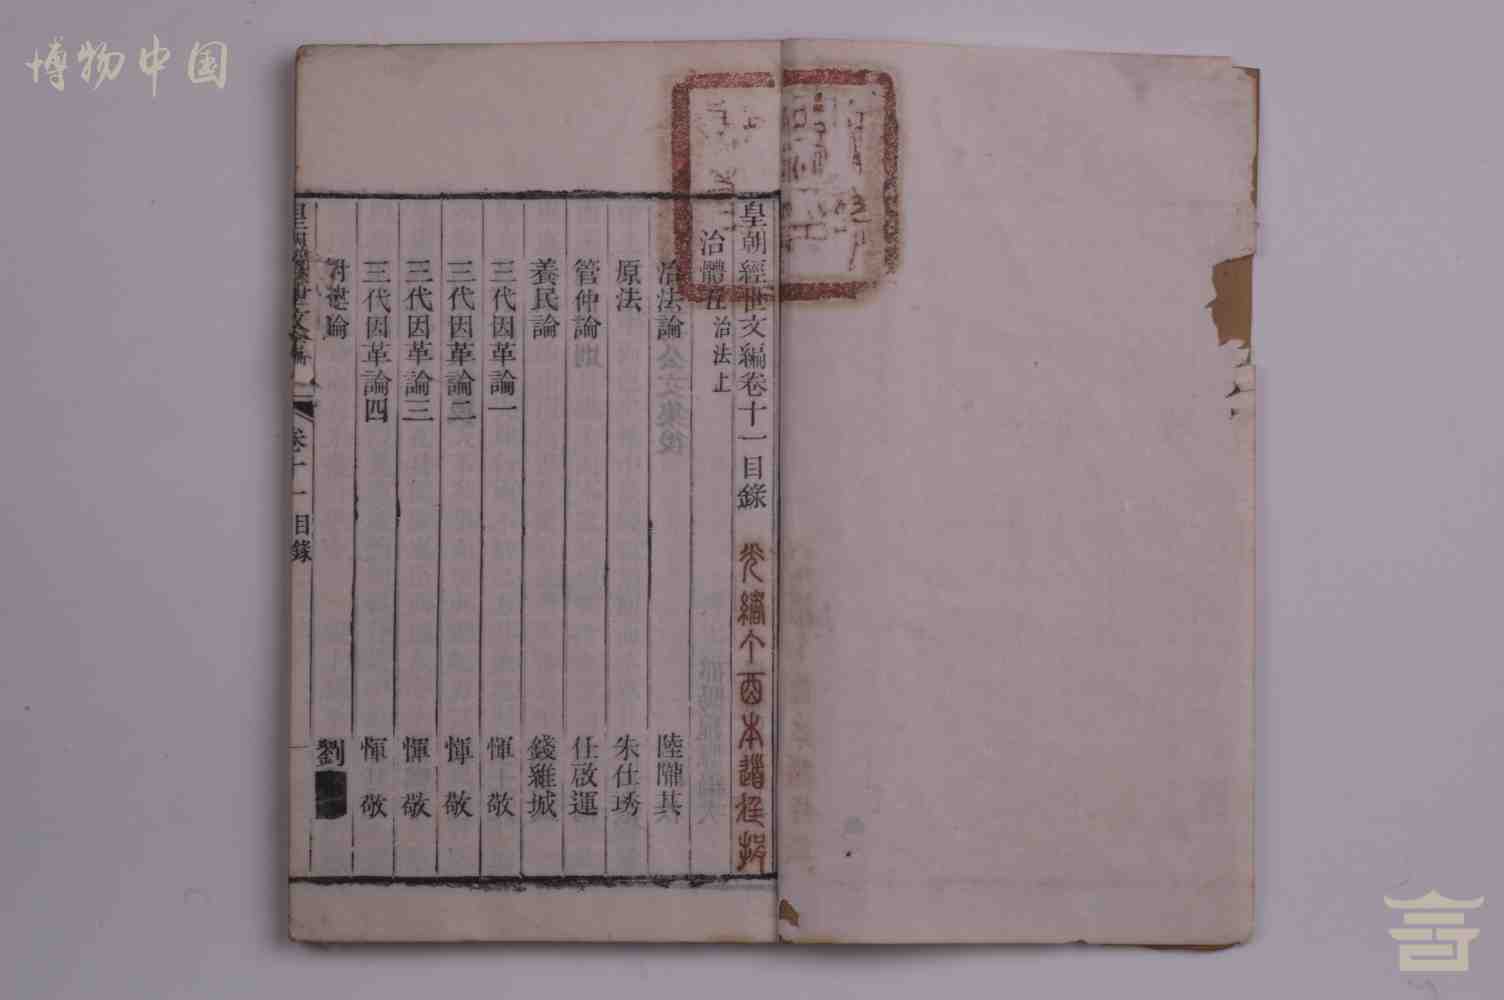 博物中国
皇朝經世文編卷十一目錄
治體五 治法上
治法論 陸隴其
原法 朱仕琇
管仲論 任啟運
養民論 錢維城
三代因革論一 惲敬
三代因革論二 惲敬
三代因革論三 惲敬
三代因革論四 惲敬
論 劉
皇朝經世文編 卷十一目錄